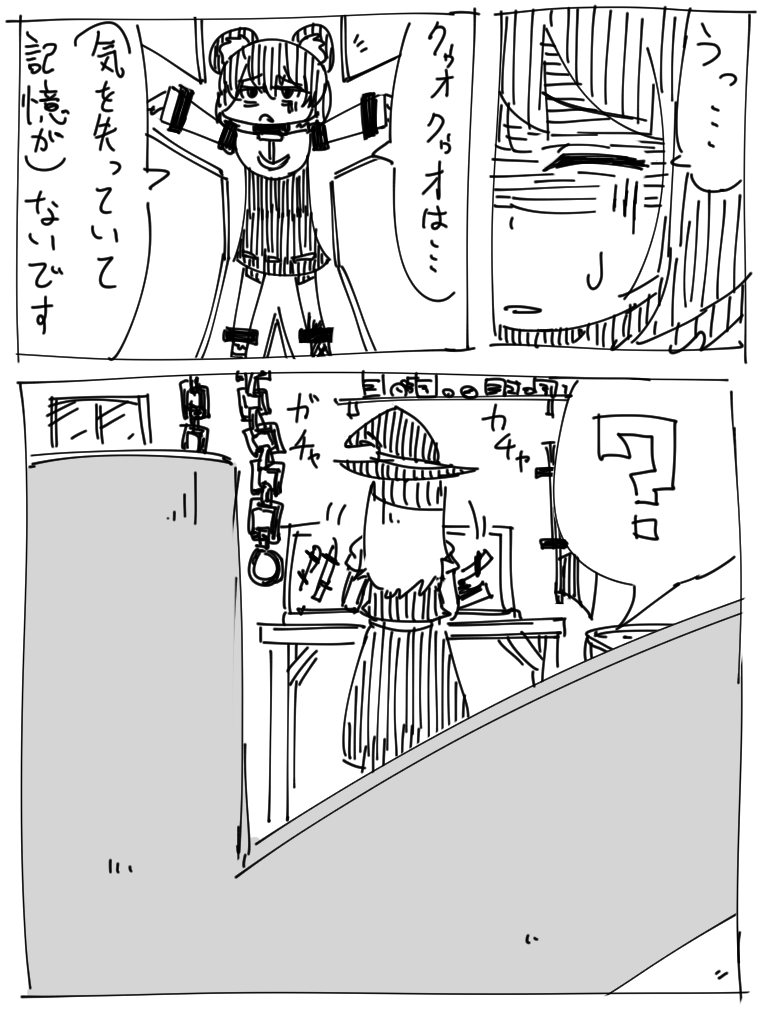 うっ…
クゥオクゥオは…
(気を失っていて
記憶が)ないです
カチャ
ガチャ
?